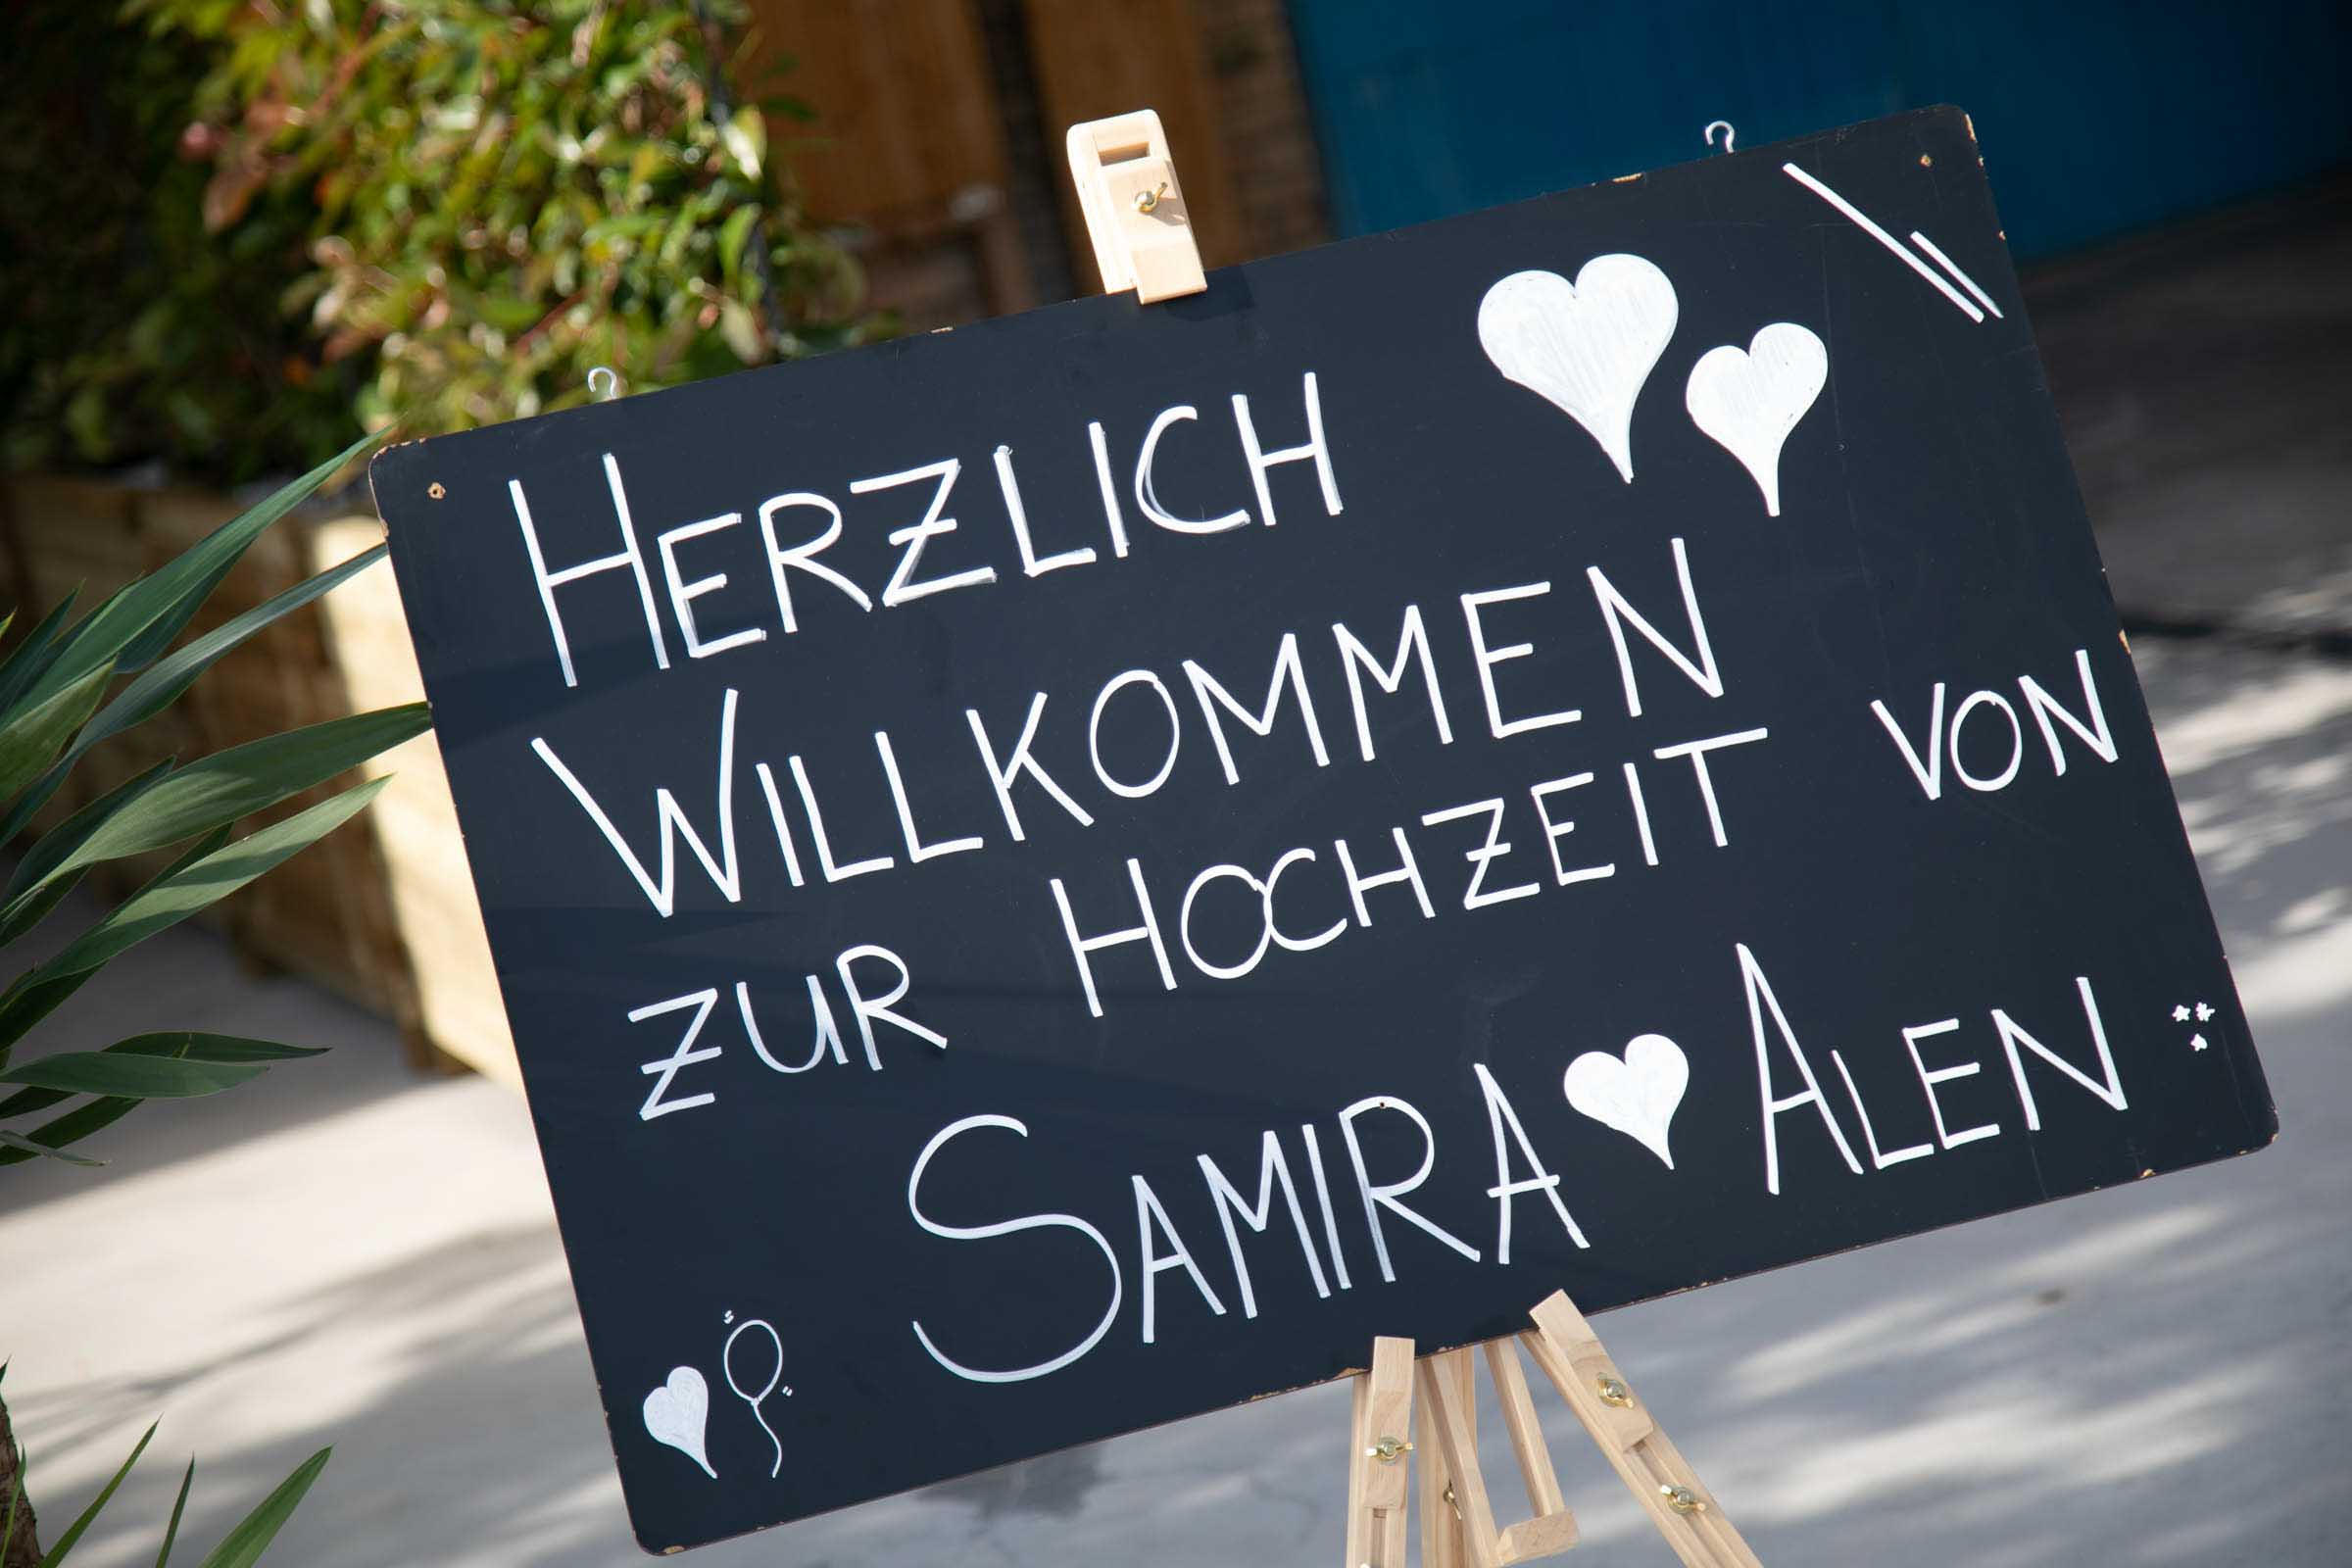 HERZLICH
WILLKOMMEN
ZUR HOCHZEIT VON
SAMIRA ALEN